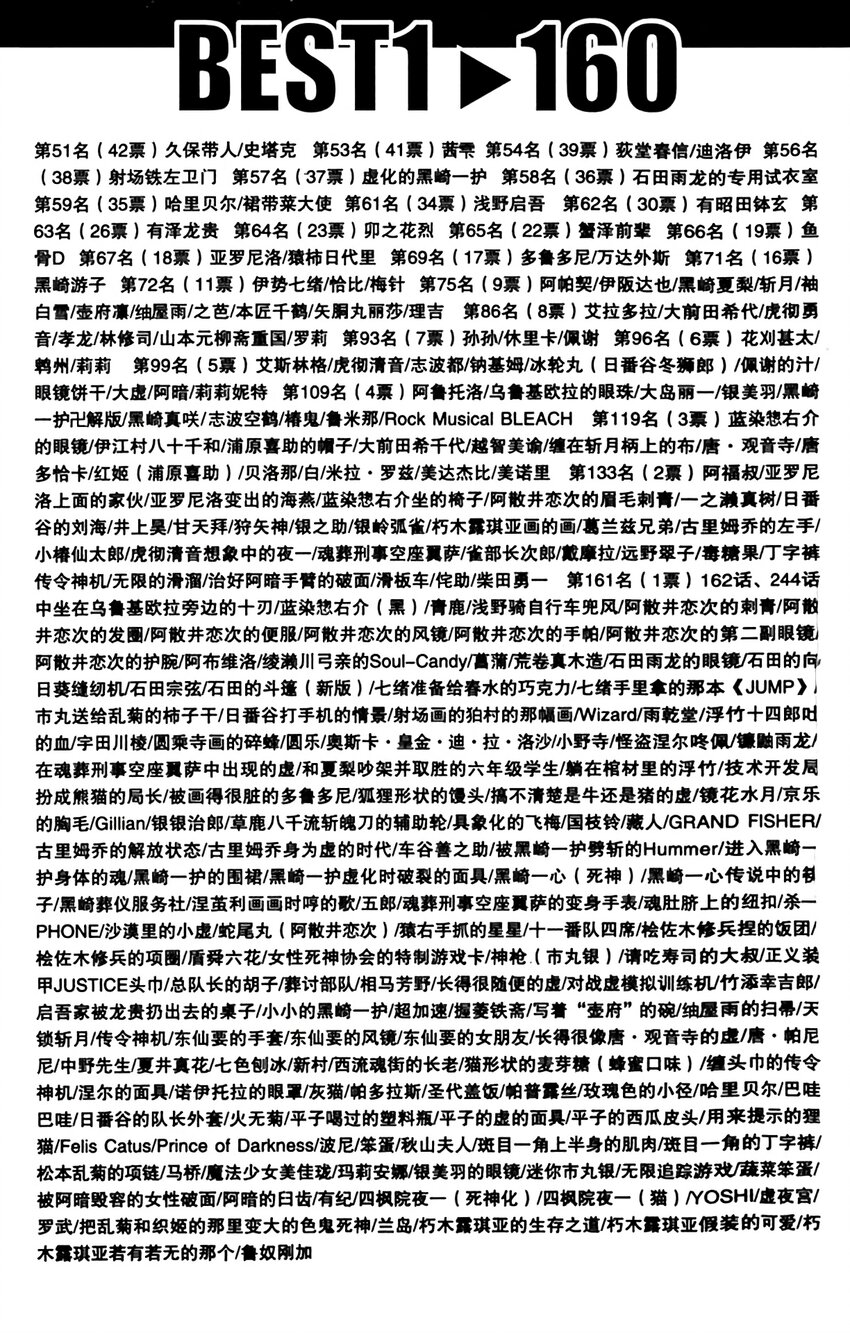 BEST1▶160
第51名（42票）久保带人/史塔克 第53名（41票）茜雫 第54名（39票）荻堂春信/迪洛伊 第56名
（38票）射场铁左卫门 第57名（37票）虚化的黑崎一护 第58名（36票）石田雨龙的专用试衣室
第59名（35票）哈里贝尔/裙带菜大使 第61名（34票）浅野启吾 第62名（30票）有昭田钵玄 第
63名（26票）有泽龙贵 第64名（23票）卯之花烈 第65名（22票）蟹泽前辈 第66名（19票）鱼
骨D 第67名（18票）亚罗尼洛/猿柿日代里 第69名（17票）多鲁多尼/万达外斯 第71名（16票）
黑崎游子 第72名（11票）伊势七绪/恰比/梅针 第75名（9票）阿帕契/伊阪达也/黑崎夏梨/斩月/袖
白雪/壶府凛/䌷屋雨/之芭/本匠千鹤/矢胴丸丽莎/理吉 第86名（8票）艾拉多拉/大前田希代/虎彻勇
音/孝龙/林修司/山本元柳斋重国/罗莉 第93名（7票）孙孙/休里卡/佩谢 第96名（6票）花刈甚太/
鹎州/莉莉 第99名（5票）艾斯林格/虎彻清音/志波都/钠基姆/冰轮丸（日番谷冬狮郎）/佩谢的汁/
眼镜饼干/大虚/阿暗/莉莉妮特 第109名（4票）阿鲁托洛/乌鲁基欧拉的眼珠/大岛丽一/银美羽/黑崎
一护卍解版/黑崎真咲/志波空鹤/椿鬼/鲁米那/Rock Musical BLEACH 第119名（3票）蓝染惣右介
的眼镜/伊江村八十千和/浦原喜助的帽子/大前田希千代/越智美谕/缠在斩月柄上的布/唐·观音寺/唐
多恰卡/红姬（浦原喜助）/贝洛那/白/米拉·罗兹/美达杰比/美诺里 第133名（2票）阿福叔/亚罗尼
洛上面的家伙/亚罗尼洛变出的海燕/蓝染惣右介坐的椅子/阿散井恋次的眉毛刺青/一之濑真树/日番
谷的刘海/井上昊/甘天拜/狩矢神/银之助/银岭弧雀/朽木露琪亚画的画/葛兰兹兄弟/古里姆乔的左手/
小椿仙太郎/虎彻清音想象中的夜一/魂葬刑事空座翼萨/雀部长次郎/戴摩拉/远野翠子/毒糖果/丁字裤
传令神机/无限的滑溜/治好阿暗手臂的破面/滑板车/侘助/柴田勇一 第161名（1票）162话、244话
中坐在乌鲁基欧拉旁边的十刃/蓝染惣右介（黑）/青鹿/浅野骑自行车兜风/阿散井恋次的刺青/阿散
井恋次的发圈/阿散井恋次的便服/阿散井恋次的风镜/阿散井恋次的手帕/阿散井恋次的第二副眼镜/
阿散井恋次的护腕/阿布维洛/绫濑川弓亲的Soul-Candy/菖蒲/荒卷真木造/石田雨龙的眼镜/石田的向
日葵缝纫机/石田宗弦/石田的斗篷（新版）/七绪准备给春水的巧克力/七绪手里拿的那本《JUMP》/
市丸送给乱菊的柿子干/日番谷打手机的情景/射场画的狛村的那幅画/Wizard/雨乾堂/浮竹十四郎吐
的血/宇田川棱/圆乘寺画的碎蜂/圆乐/奥斯卡·皇金·迪·拉·洛沙/小野寺/怪盗涅尔咚佩/镰鼬雨龙/
在魂葬刑事空座翼萨中出现的虚/和夏梨吵架并取胜的六年级学生/躺在棺材里的浮竹/技术开发局
扮成熊猫的局长/被画得很脏的多鲁多尼/狐狸形状的馒头/搞不清楚是牛还是猪的虚/镜花水月/京乐
的胸毛/Gillian/银银治郎/草鹿八千流斩魄刀的辅助轮/具象化的飞梅/国枝铃/藏人/GRAND FISHER/
古里姆乔的解放状态/古里姆乔身为虚的时代/车谷善之助/被黑崎一护劈斩的Hummer/进入黑崎一
护身体的魂/黑崎一护的围裙/黑崎一护虚化时破裂的面具/黑崎一心（死神）/黑崎一心传说中的
子/黑崎葬仪服务社/涅茧利画画时哼的歌/五郎/魂葬刑事空座翼萨的变身手表/魂肚脐上的纽扣/杀一
PHONE/沙漠里的小虚/蛇尾丸（阿散井恋次）/猿右手抓的星星/十一番队四席/桧佐木修兵捏的饭团/
桧佐木修兵的项圈/盾舜六花/女性死神协会的特制游戏卡/神枪（市丸银）/请吃寿司的大叔/正义装
甲JUSTICE头巾/总队长的胡子/葬讨部队/相马芳野/长得很随便的虚/对战虚模拟训练机/竹添幸吉郎/
启吾家被龙贵扔出去的桌子/小小的黑崎一护/超加速/握菱铁斋/写着“壶府”的碗/䌷屋雨的扫帚/天
锁斩月/传令神机/东仙要的手套/东仙要的风镜/东仙要的女朋友/长得很像唐·观音寺的虚/唐·帕尼
尼/中野先生/夏井真花/七色刨冰/新村/西流魂街的长老/猫形状的麦芽糖（蜂蜜口味）/缠头巾的传令
神机/涅尔的面具/诺伊托拉的眼罩/灰猫/帕多拉斯/圣代盖饭/帕普露丝/玫瑰色的小径/哈里贝尔/巴哇
巴哇/日番谷的队长外套/火无菊/平子喝过的塑料瓶/平子的虚的面具/平子的西瓜皮头/用来提示的狸
猫/Felis Catus/Prince of Darkness/波尼/笨蛋/秋山夫人/斑目一角上半身的肌肉/斑目一角的丁字裤/
松本乱菊的项链/马桥/魔法少女美佳珑/玛莉安娜/银美羽的眼镜/迷你市丸银/无限追踪游戏/蔬菜笨蛋/
被阿暗毁容的女性破面/阿暗的臼齿/有纪/四枫院夜一（死神化）/四枫院夜一（猫）/YOSHI/虚夜宫/
罗武/把乱菊和织姬的那里变大的色鬼死神/兰岛/朽木露琪亚的生存之道/朽木露琪亚假装的可爱/朽
木露琪亚若有若无的那个/鲁奴刚加